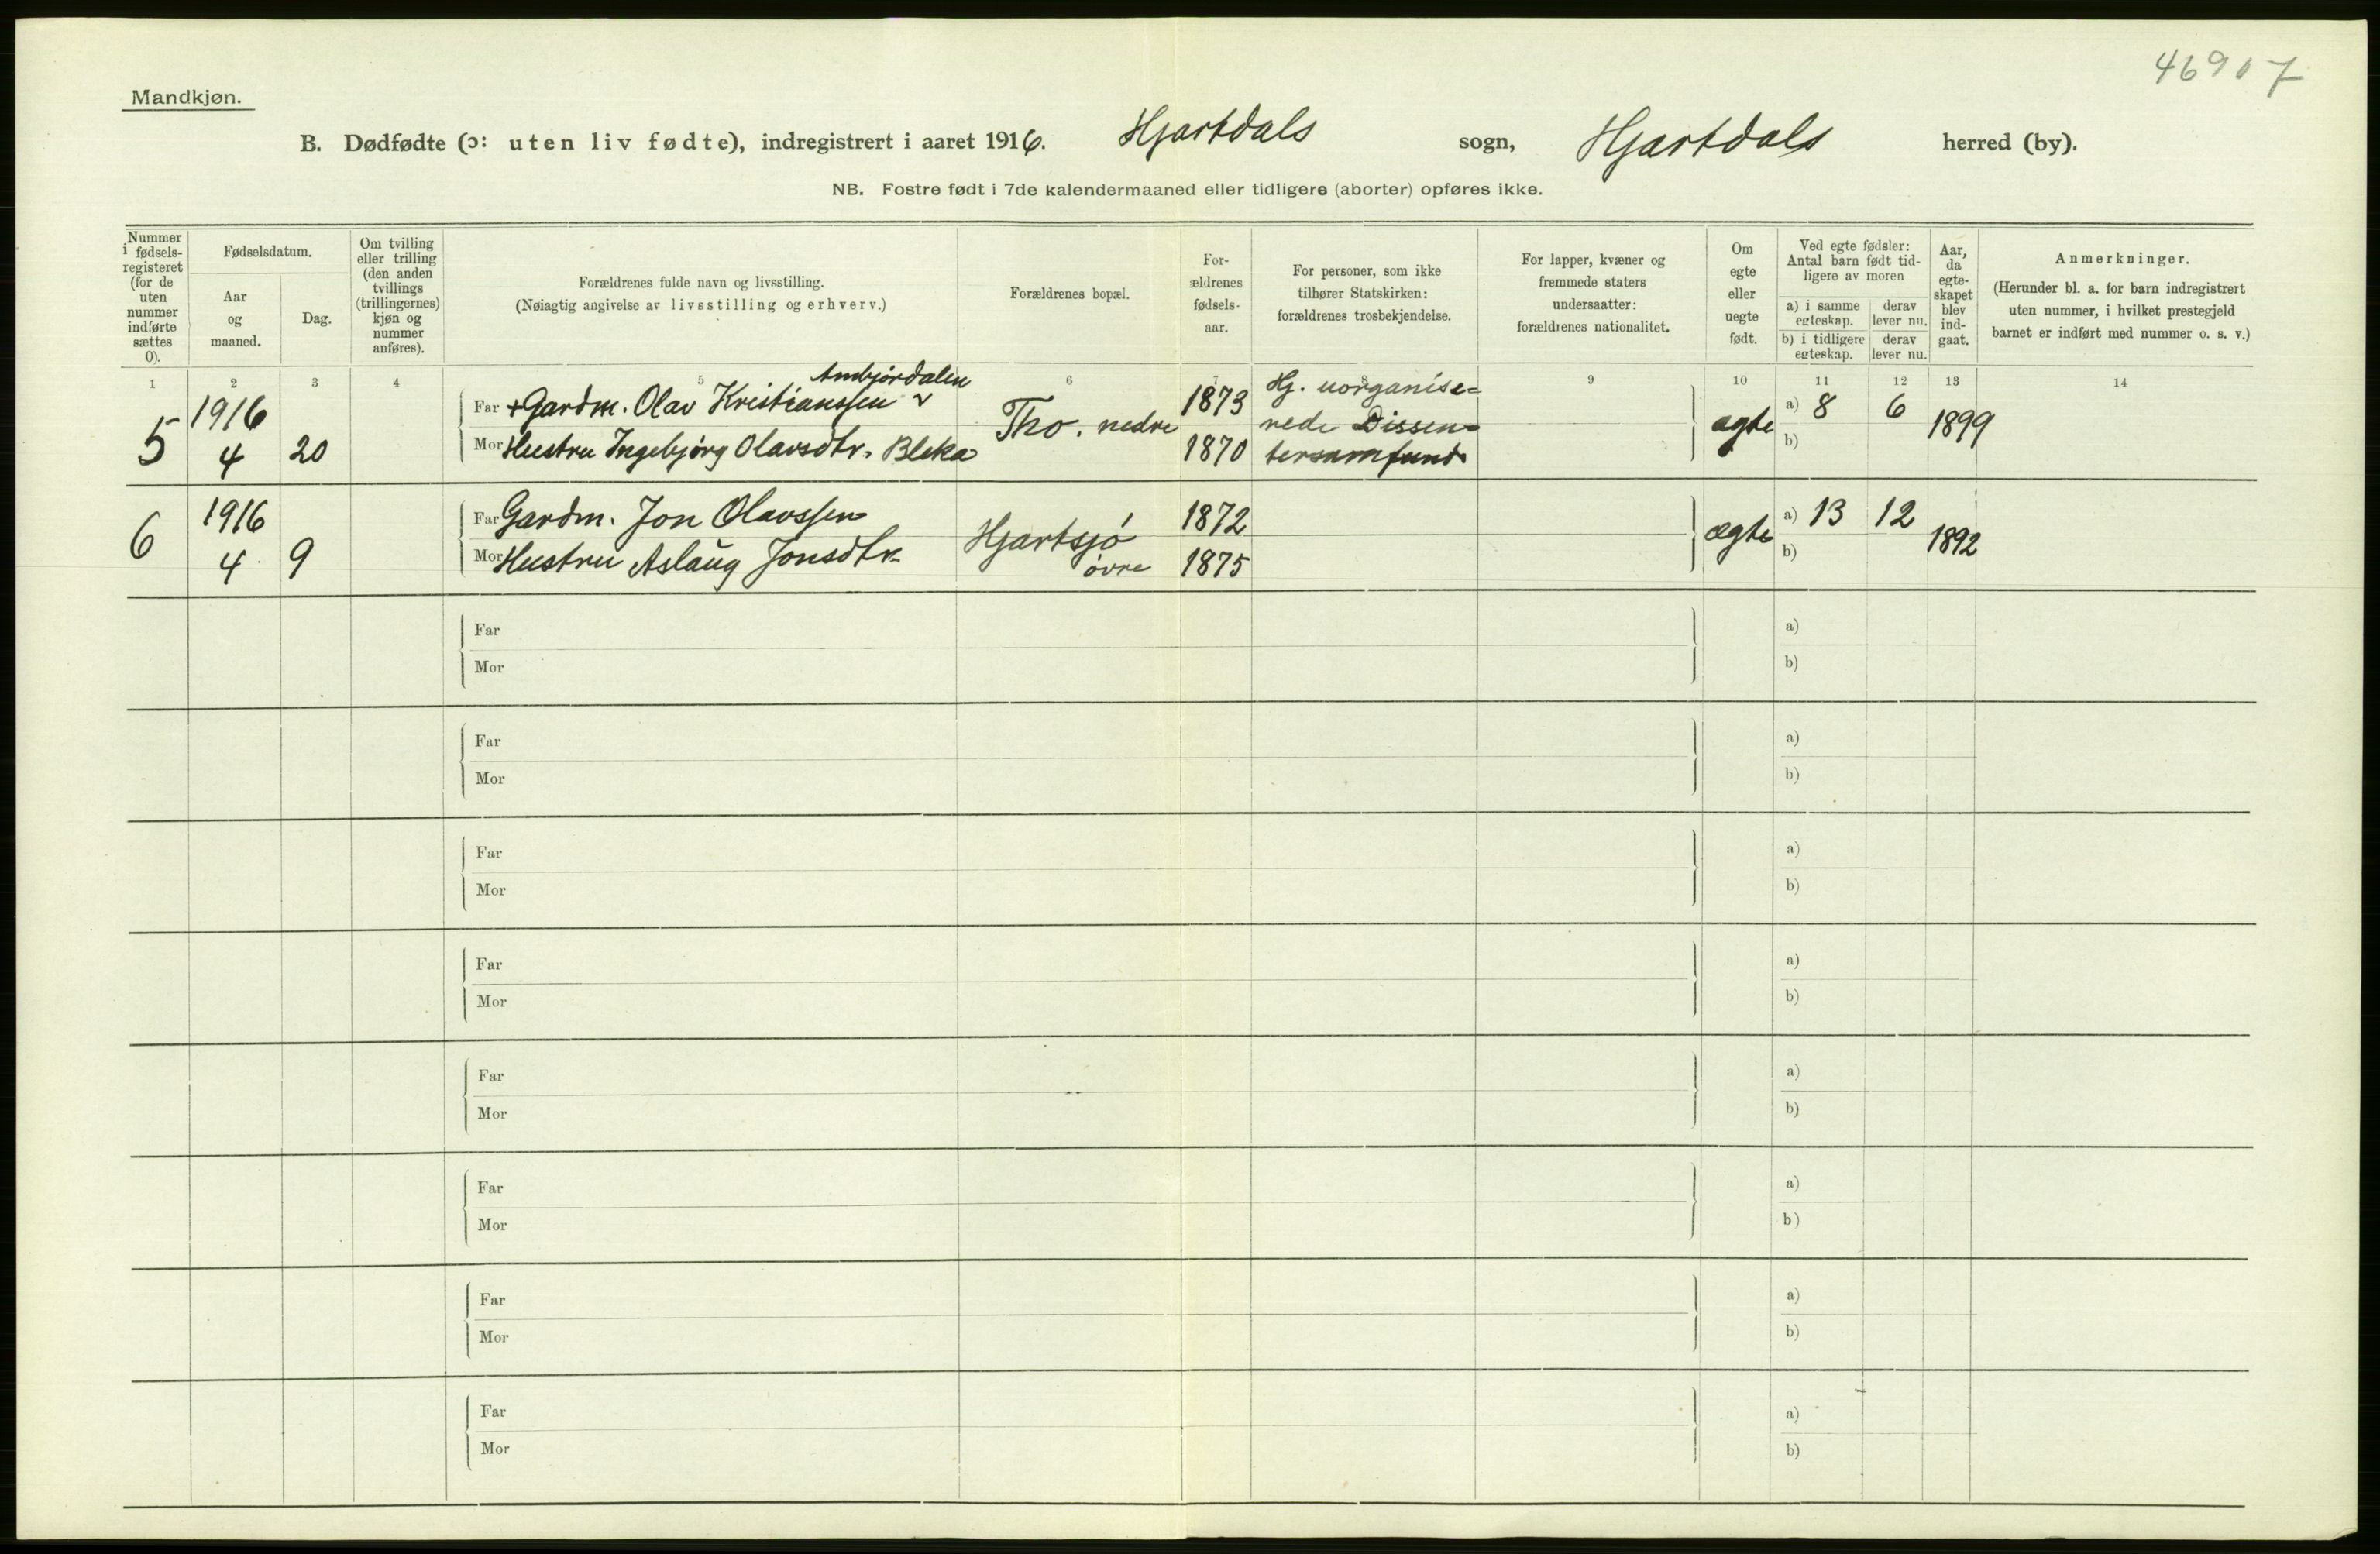 46907
Mandkjøn.
B. Dødfødte (ɔ: uten liv fødte), indregistrert i aaret 1916. Hjartdals sogn, Hjartdals herred (by).
NB. Fostre født i 7de kalendermaaned eller tidligere (aborter) opføres ikke.
Nummer
i fødsels-
registeret
(for de
uten
nummer
indførte
sættes
0).
Fødselsdatum.
Aar
og
maaned.
Dag.
Om tvilling
eller trilling
(den anden
tvillings
(trillingernes)
kjøn og
nummer
anføres).
Forældrenes fulde navn og livsstilling.
(Nøiagtig angivelse av livsstilling og erhverv.)
Forældrenes bopæl.
For-
ældrenes
fødsels-
aar.
For personer, som ikke
tilhører Statskirken:
forældrenes trosbekjendelse.
For lapper, kvæner og
fremmede staters
undersaatter:
forældrenes nationalitet.
Om
egte
eller
uegte
født.
Ved egte fødsler:
Antal barn født tid-
ligere av moren
a) i samme
egteskap.
derav
lever nu.
b) i tidligere
egteskap.
derav
lever nu.
Aar,
da
egte-
skapet
blev
ind-
gaat.
Anmerkninger.
(Herunder bl. a. for barn indregistrert
uten nummer, i hvilket prestegjeld
barnet er indført med nummer o. s. v.)
1 2 3 4 5 6 9 10 11 12 13 14
5
1916
4 20
Ambjørdalen
Far + Gardm. Olav Kristianssen
Mor Hustru Ingebjørg Olavsdtr. Bleka
Tho. nedre
1873
1870
Hj. uorganise=
rede Dissen=
tersamfund.
ægte
a) 8 6
b)
1899
6
1916
4 9
Far Gardm. Jon Olavssen
Mor Hustru Aslaug Jonsdtr.
Hjartsjø
øvre
1872
1875
ægte
a) 13 12
b)
1892
Far a)
Mor b)
Far a)
Mor b)
Far a)
Mor b)
Far a)
Mor b)
Far a)
Mor b)
Far a)
Mor b)
Far a)
Mor b)
Far a)
Mor b)